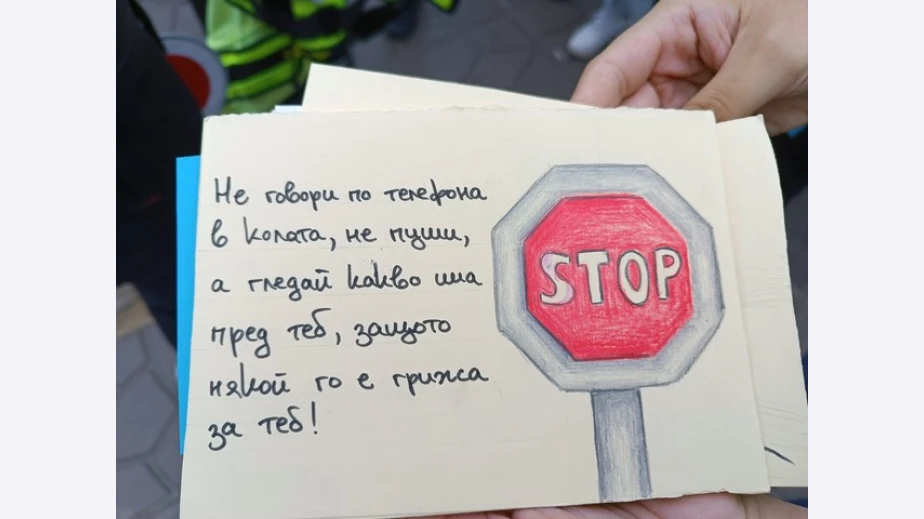 Не говори по телефона
в колата, не пуши,
а гледай какво има
пред теб, защото
някой го е грижа
за теб!
STOP